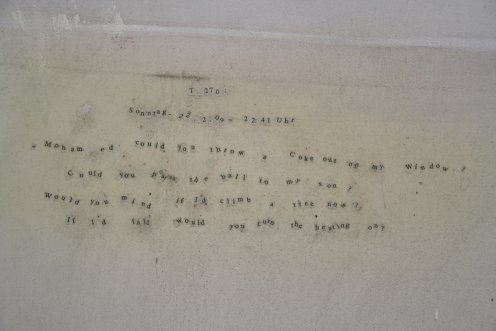 T 270
Sonntag- 22. 2. 09- 22:41 Uhr
Mohammed could you throw a Coke out of my Window?
Could you pass the ball to my son?
Would you mind if I'd climb a tree now?
If I'd would you turn the heating on?